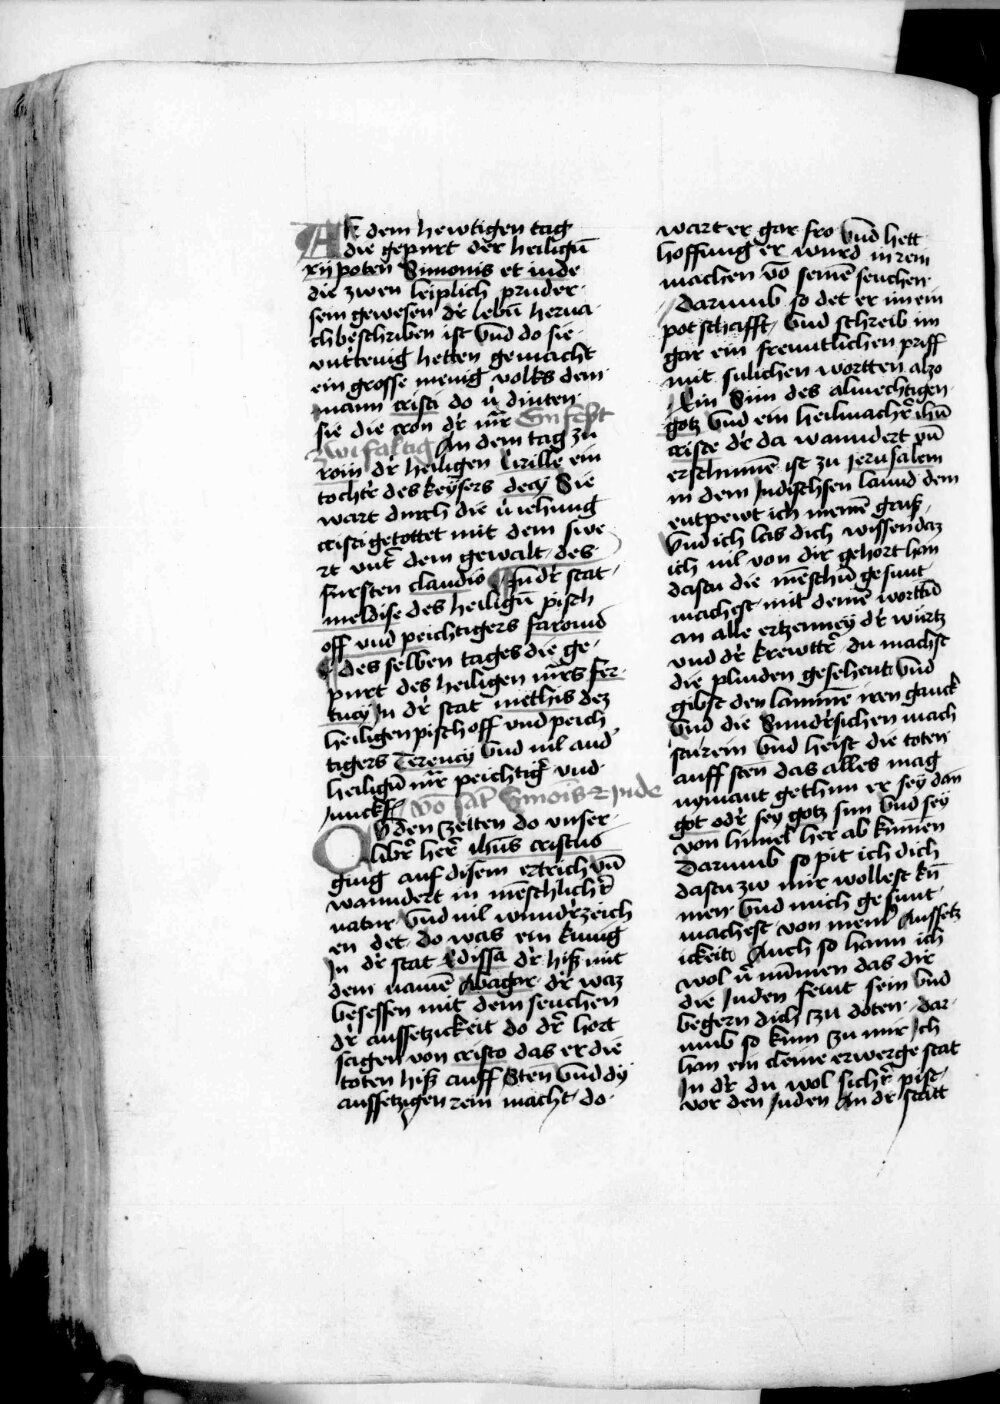 An dem hewtigen tag
die gepurt der heiligū
xij poten Simonis et iude
die zwen leiplich pruder
sein gewesen dr̄ lebū herna
ch beschriben ist vnd do sie
hetten gemacht
ein grosse menig volks dem
mann cristi do dinten
sie die cron dr̄ mr̄r Ein fest
zwifaltig An dem tag zu
rom dr̄ heiligen Cirille ein
tochtr̄ des keysers decij Sie
wart durch die v̄iehung
cristi getottet mit dem swe
rt vntr̄ dem gewalt des
fursten claudio In dr̄ stat
meldise des heiligū pisch
off vnd peichtigers faround
des selben tages die ge
purt des heiligen mr̄rs fer
rucij In dr̄ stat methis dez
heiligen pischoff vnd peich
tigers Terencij vnd vil and'
heiligū mr̄r peichtigr̄ vnd
Junckf vō sāt Simōis et Jude
In den zeiten do vnser
libr̄ herr̄ ihūs cristus
ging auf disem ertrich vn̄
wanndert in mēschlichr̄
natur vnd vil wundr̄zeich
en det do was ein kunig
In dr̄ stat Edissa dr̄ hiß mit
dem namē Abagar dr̄ waz
besessen mit dem seuchen
dr̄ aussetzickeit do dr̄ hort
sagen von cristo das er die
toten hiß auff Sten vnd dy
aussetzigen rein macht do
wart er gar fro vnd hett
hoffnung er wurd in rein
machen vō seinē seuchen
Darumb so det er im ein
potschafft vnd schreib im
gar ein freuntlichen priff
mit sulichen wortten also
Ein Sun des almechtigen
gotz vnd ein heilmachr̄ ihū
criste dr̄ da wanndert vn̄
erschinnē ist zu Jerusalem
in dem Judischsen lannd dem
entpewt ich meinē gruß
vnd ich las dich wissen daz
ich vil von dir gehort han
dastu die mēschū gesunt
machest mit deinē worttū
an alle ertzenney dr̄ wurtz
vnd dr̄ krewttr̄ du machst
die plinden gesehent vnd
gibst den lammē iren ganck
vnd die Sundr̄sichen mach
stu rein vnd heist die toten
auff sten das alles mag
nymant gethun er sey dan
got odr̄ sey gotz sun vnd sey
von himel her ab kūmen
Darumb so pit ich dich
dastu zw mir wollest kū
men vnd mich gesunt
machest von meinr̄ Aussetz
ickeit Auch so hann ich
wol v̄ nūmen das dir
die Juden feint sein vnd
begern dich zu doten dar
umb so kum zu mir Ich
han ein cleine erwerge stat
In dr̄ du wol sichr̄ pist
vor den Juden An dr̄ statt